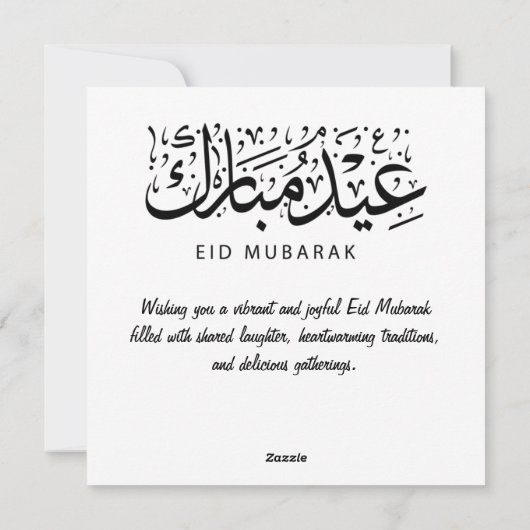 عِيْدٌ مُبَارَك
EID MUBARAK
Wishing you a vibrant and joyful Eid Mubarak
filled with shared laughter, heartwarming traditions,
and delicious gatherings.
Zazzle